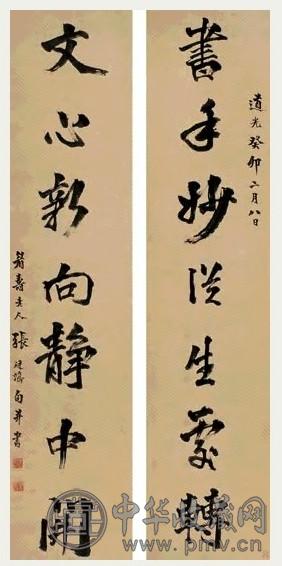 道光癸卯二月八日
書手妙從生處轉
文心新向靜中開
眉壽老人張廷濟句并書
中华收藏网
www.pmv.cn